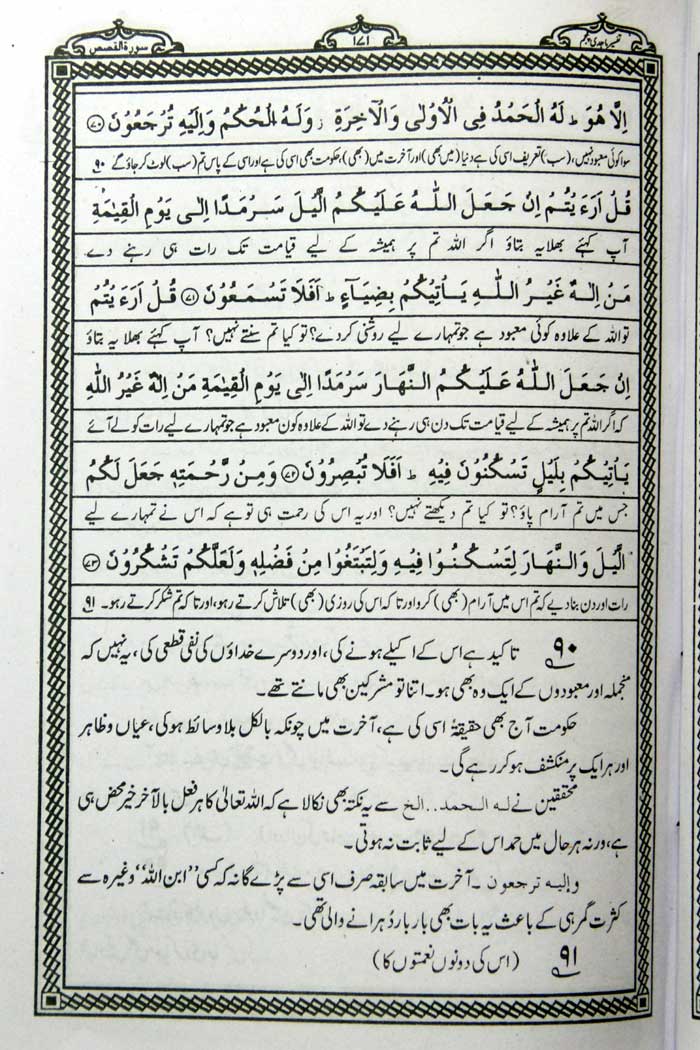 تفسیر ماجدی پنجم
۱۷۱
سورۃ القصص
اِلَّا هُوَ ؕ لَهُ الْحَمْدُ فِی الْاُوْلٰی وَالْاٰخِرَةِ ؗ وَلَهُ الْحُكْمُ وَاِلَیْهِ تُرْجَعُوْنَ ۷۰
سوا کوئی معبود نہیں، (سب) تعریف اسی کی ہے دنیا (میں بھی) اور آخرت میں (بھی)، حکومت بھی اسی کی ہے اور اسی کے پاس تم (سب) لوٹ کر جاؤ گے ۹۰
قُلْ اَرَءَیْتُمْ اِنْ جَعَلَ اللّٰهُ عَلَیْكُمُ الَّیْلَ سَرْمَدًا اِلٰی یَوْمِ الْقِیٰمَةِ
آپ کہئے بھلا یہ بتاؤ اگر اللہ تم پر ہمیشہ کے لیے قیامت تک رات ہی رہنے دے
مَنْ اِلٰهٌ غَیْرُ اللّٰهِ یَاْتِیْكُمْ بِضِیَآءٍ ؕ اَفَلَا تَسْمَعُوْنَ ۷۱ قُلْ اَرَءَیْتُمْ
تو اللہ کے علاوہ کوئی معبود ہے جو تمہارے لیے روشنی کردے؟ تو کیا تم سنتے نہیں؟ آپ کہئے بھلا یہ بتاؤ
اِنْ جَعَلَ اللّٰهُ عَلَیْكُمُ النَّهَارَ سَرْمَدًا اِلٰی یَوْمِ الْقِیٰمَةِ مَنْ اِلٰهٌ غَیْرُ اللّٰهِ
کہ اگر اللہ تم پر ہمیشہ کے لیے قیامت تک دن ہی رہنے دے تو اللہ کے علاوہ کون معبود ہے جو تمہارے لیے رات کو لے آئے
یَاْتِیْكُمْ بِلَیْلٍ تَسْكُنُوْنَ فِیْهِ ؕ اَفَلَا تُبْصِرُوْنَ ۷۲ وَمِنْ رَّحْمَتِهٖ جَعَلَ لَكُمُ
جس میں تم آرام پاؤ؟ تو کیا تم دیکھتے نہیں؟ اور یہ اس کی رحمت ہی تو ہے کہ اس نے تمہارے لیے
الَّیْلَ وَالنَّهَارَ لِتَسْكُنُوْا فِیْهِ وَلِتَبْتَغُوْا مِنْ فَضْلِهٖ وَلَعَلَّكُمْ تَشْكُرُوْنَ ۷۳
رات اور دن بنا دیے کہ تم اس میں آرام (بھی) کرو اور تا کہ اس کی روزی (بھی) تلاش کرتے رہو، اور تا کہ تم شکر کرتے رہو۔ ۹۱
۹۰ تاکید ہے اس کے اکیلے ہونے کی، اور دوسرے خداؤں کی نفی قطعی کی، یہ نہیں کہ
منجملہ اور معبودوں کے ایک وہ بھی ہو۔ اتنا تو مشرکین بھی مانتے تھے۔
حکومت آج بھی حقیقۃً اسی کی ہے، آخرت میں چونکہ بالکل بلا وسائط ہوگی، عیاں و ظاہر
اور ہر ایک پر منکشف ہو کر رہے گی۔
محققین نے له الحمد .. الخ سے یہ نکتہ بھی نکالا ہے کہ اللہ تعالیٰ کا ہر فعل بالآخر خیر محض ہی
ہے، ورنہ ہر حال میں حمد اس کے لیے ثابت نہ ہوتی۔
والیه ترجعون۔ آخرت میں سابقہ صرف اسی سے پڑے گا نہ کہ کسی ”ابن اللہ“ وغیرہ سے
کثرت گمرہی کے باعث یہ بات بھی بار بار دُہرانے والی تھی۔
۹۱ (اس کی دونوں نعمتوں کا)